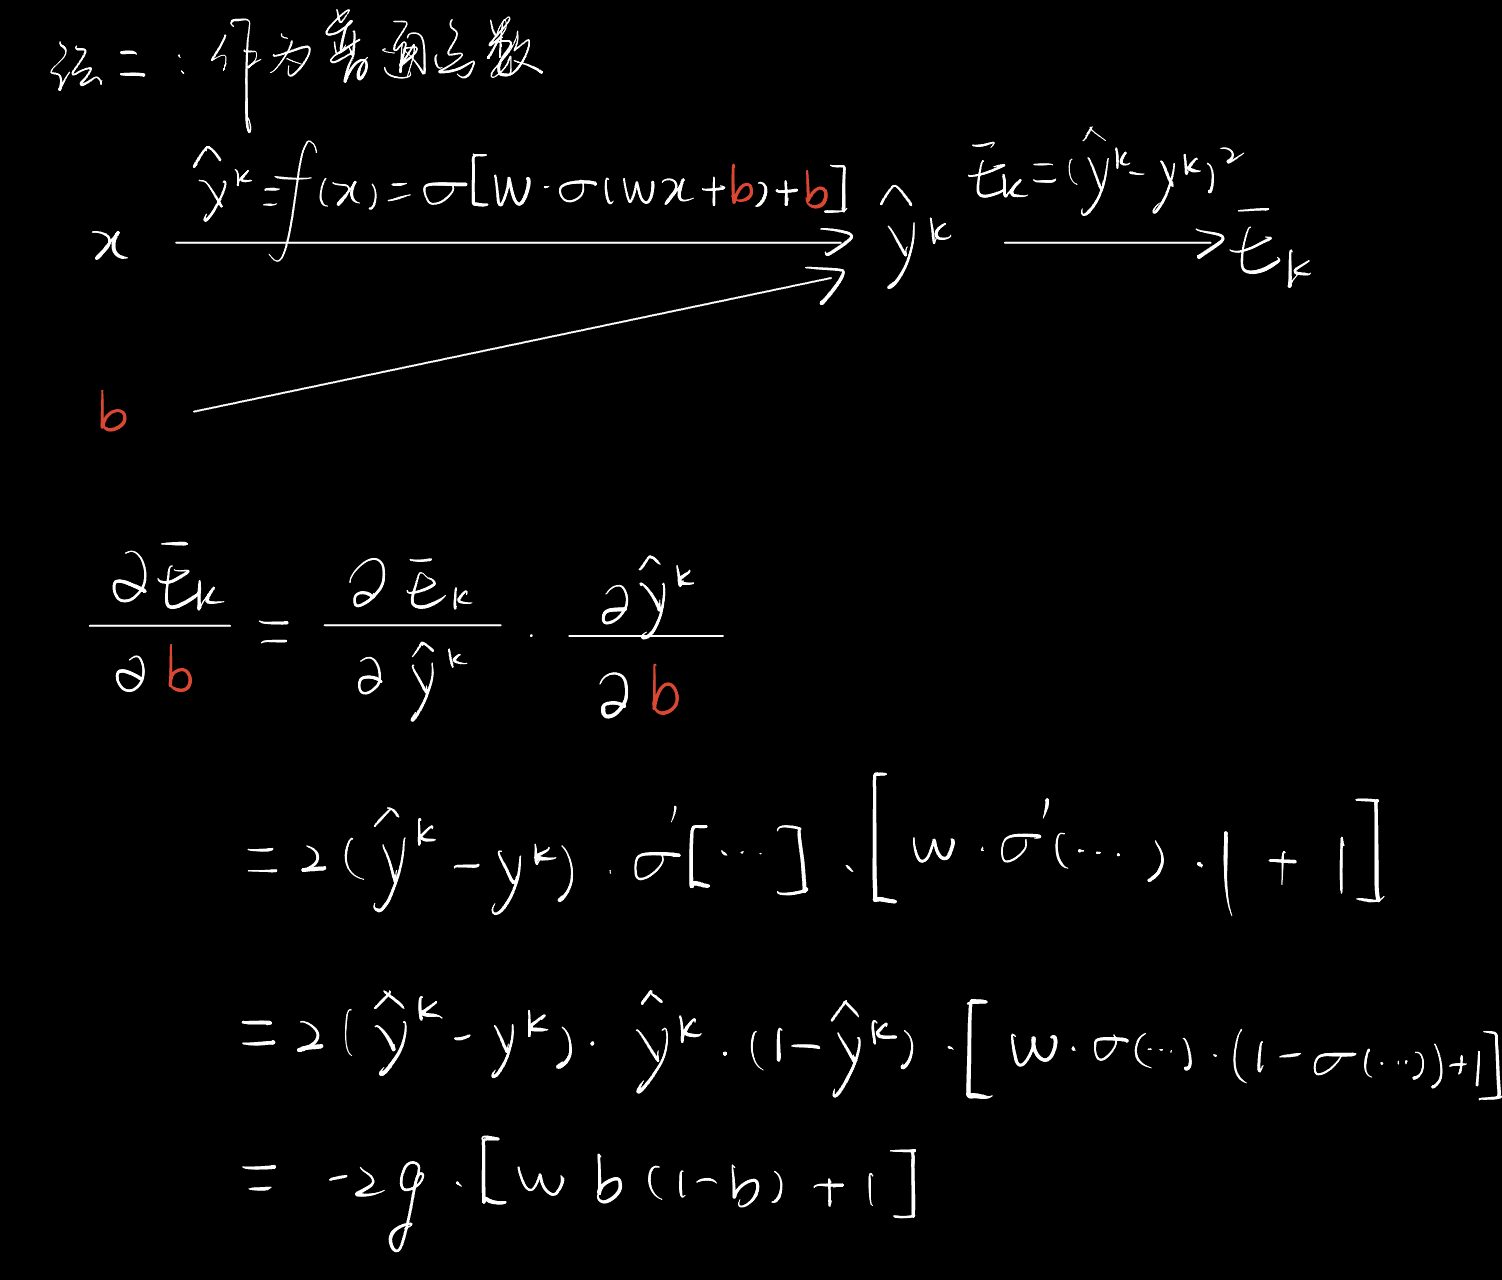 法二：作为普通函数
ŷᵏ = f(x) = σ[w·σ(wx+b)+b]
Ēₖ = (ŷᵏ - yᵏ)²
x
ŷᵏ
Ēₖ
b
∂Ēₖ/∂b = ∂Ēₖ/∂ŷᵏ · ∂ŷᵏ/∂b
= 2(ŷᵏ - yᵏ) · σ'[···] · [w · σ'(···) · 1 + 1]
= 2(ŷᵏ - yᵏ) · ŷᵏ · (1-ŷᵏ) · [w · σ(···) · (1-σ(···))+1]
= -2g · [w b (1-b) + 1]